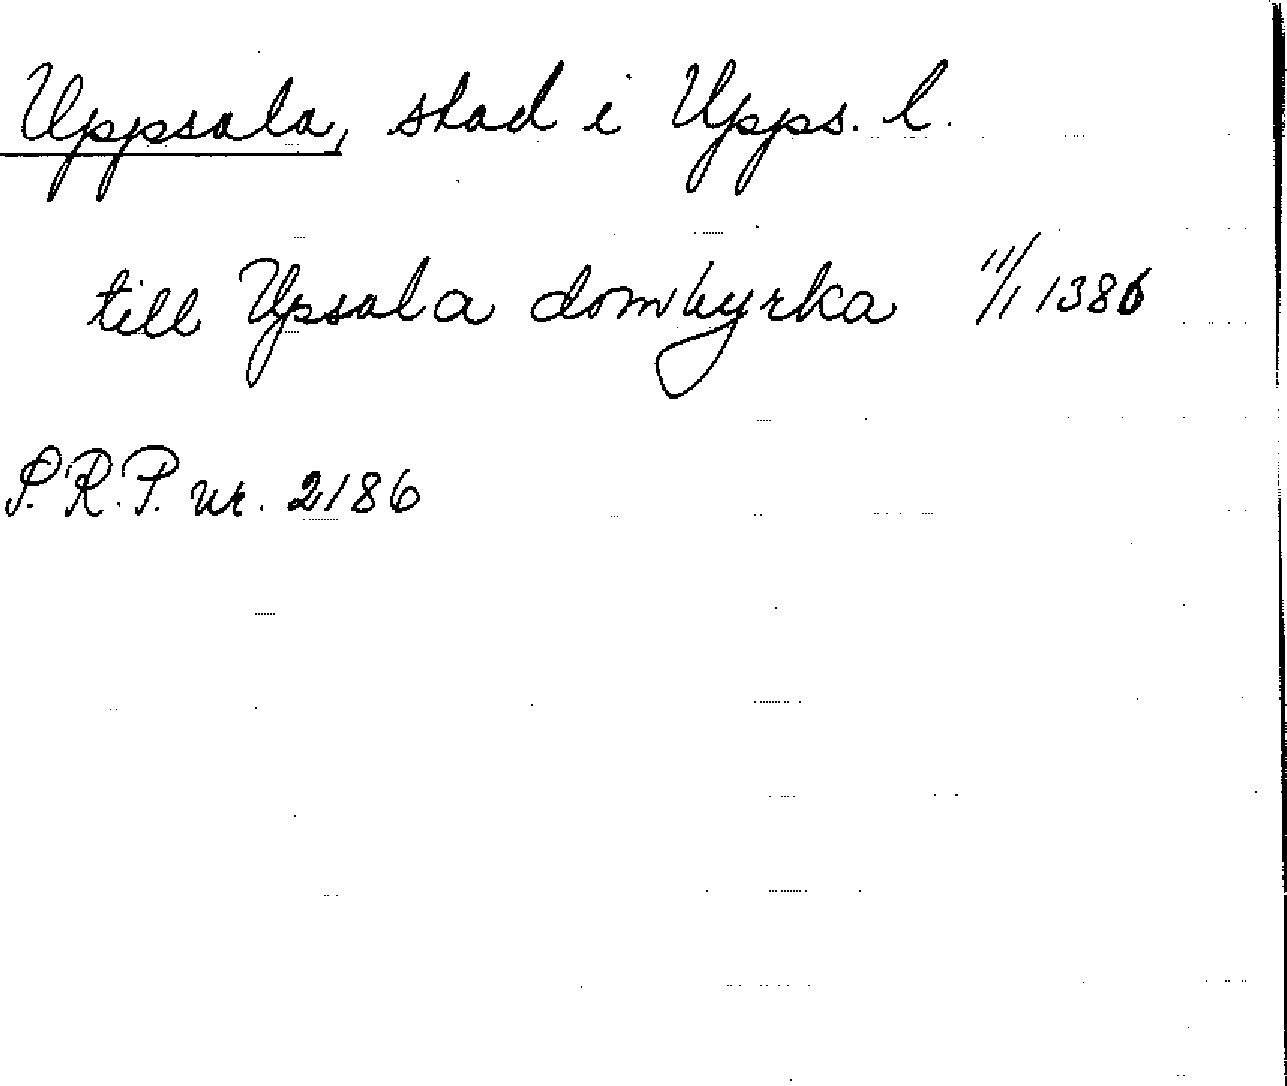 Uppsala, stad i Upps. l.
till Upsala domkyrka 11/1 1386
S.R.P. nr. 2186